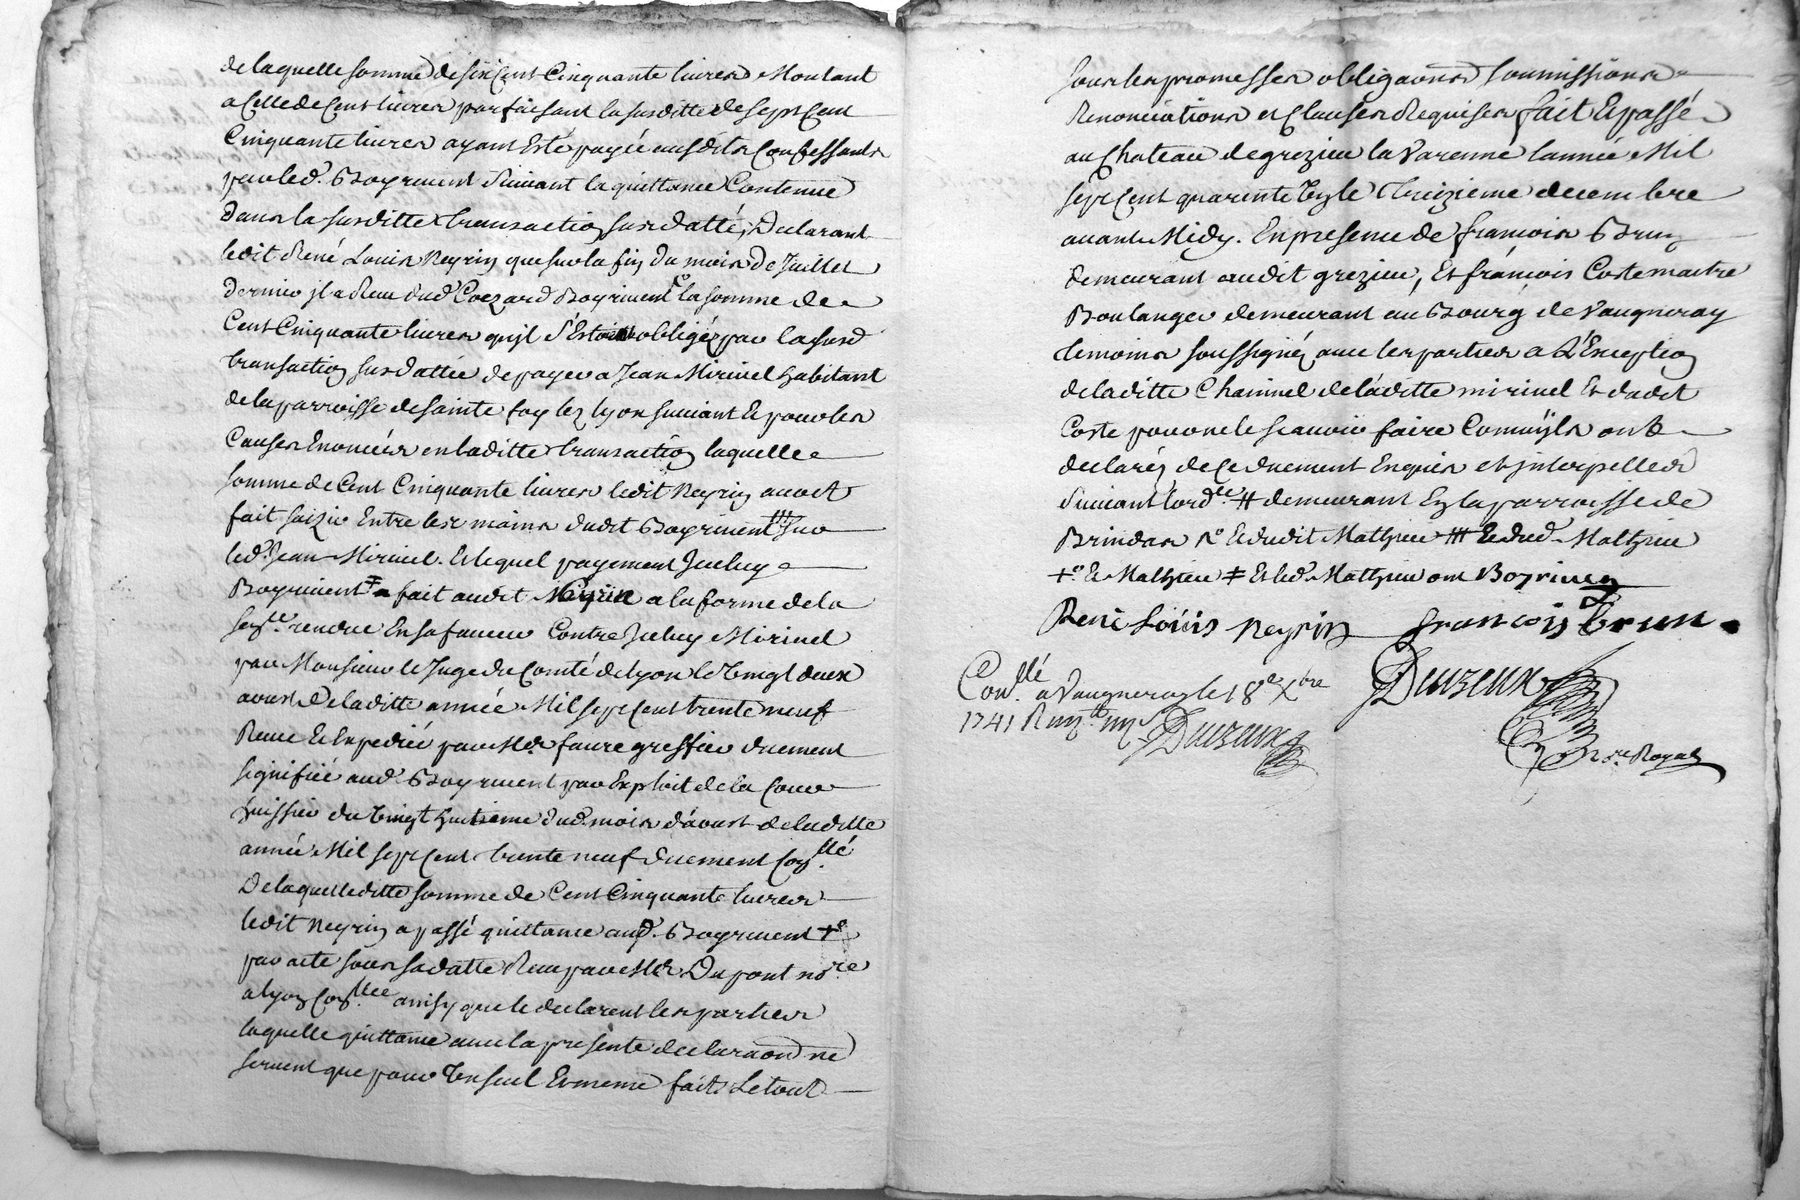 de laquelle somme de six Cent Cinquante livres Montant
a Celle de Cent livres parfaisant la susditte de sept Cent
Cinquante livres ayant Esté payée ausdits Confessants
par led. Boyriuent Suivant la quittance Contenue
Dans la susditte transaction susdatté, Declarant
ledit René Louis Neyrin que sur la fin du mois de Juillet
Dernier jl a Receu dud Boyriuent la somme de
Cent Cinquante livres qu'jl s'Estoit obligé par la susd
transaction susdattée de payer a Jean Miriuel habitant
de la parroisse de Sainte foy lez lyon suivant Et pour les
Causes Enoncées en laditte transaction laquelle
somme de Cent Cinquante livres ledit Neyrin avoit
fait saizir Entre les mains dudit Boyriuent ╫ sur
led. Jean Miriuel. Et lequel payement Jceluy
Boyriuent ‡ a fait audit Neyrin a la forme de la
rendue En sa faveur Contre Jceluy Miriuel
par Monsieur le Juge du Comté de lyon le Vingt deux
aoust de laditte année Mil sept Cent trente neuf
Receue Et Expediée par Me. faure greffier duement
signifiée aud. Boyriuent par Exploit de la Cour
huissier du Vingt huitieme dud. mois d'aoust de laditte
année Mil sept Cent trente neuf duement Con.llé
De laquelleditte somme de Cent Cinquante livres
ledit Neyrin a passé quittance aud. Boyriuent +o
par acte sous sa datte Receu par Me. Dupont no.re
a lyon Con.llée ainsy que le declarent les parties
laquelle quittance avec la presente declaraon ne
servent que pour Un seul Et meme fait. Le tout
sous les promesses obligaons soumissions
Renonciations et Clauses Requises fait Et passé
au Chateau de grezieu la Varenne l'année Mil
sept Cent quarente Un et le treizieme decembre
avant Midy. En presence de françois Brun
demeurant audit grezieu, Et françois Coste maitre
Boulanger demeurant au Bourg de Vaugneray
temoins soussignéz avec les parties a L'Exception
de laditte Chainuel de laditte miriuel Et dudit
Coste pour ne le scavoir faire Comm'jls ont
declaréz de Ce duement Enquis et jnterpelléz
Suivant l'ord.ce # demeurant En la parroisse de
Brindas No Et dudit Mathieu ╫ Et dud. Mathieu
+o Et Mathieu ‡ Et led. Mathieu ont Boyriuen
René Louis Neyrin françois brun
Con.llé a Vaugneray le 18e Xbre Duizeux
1741 Duizeux
No.re Royal